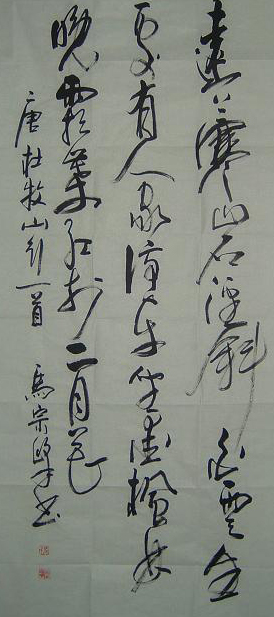 遠上寒山石徑斜白雲生
處有人家停車坐愛楓林
晚霜葉紅於二月花
唐杜牧山行一首 馬宗書